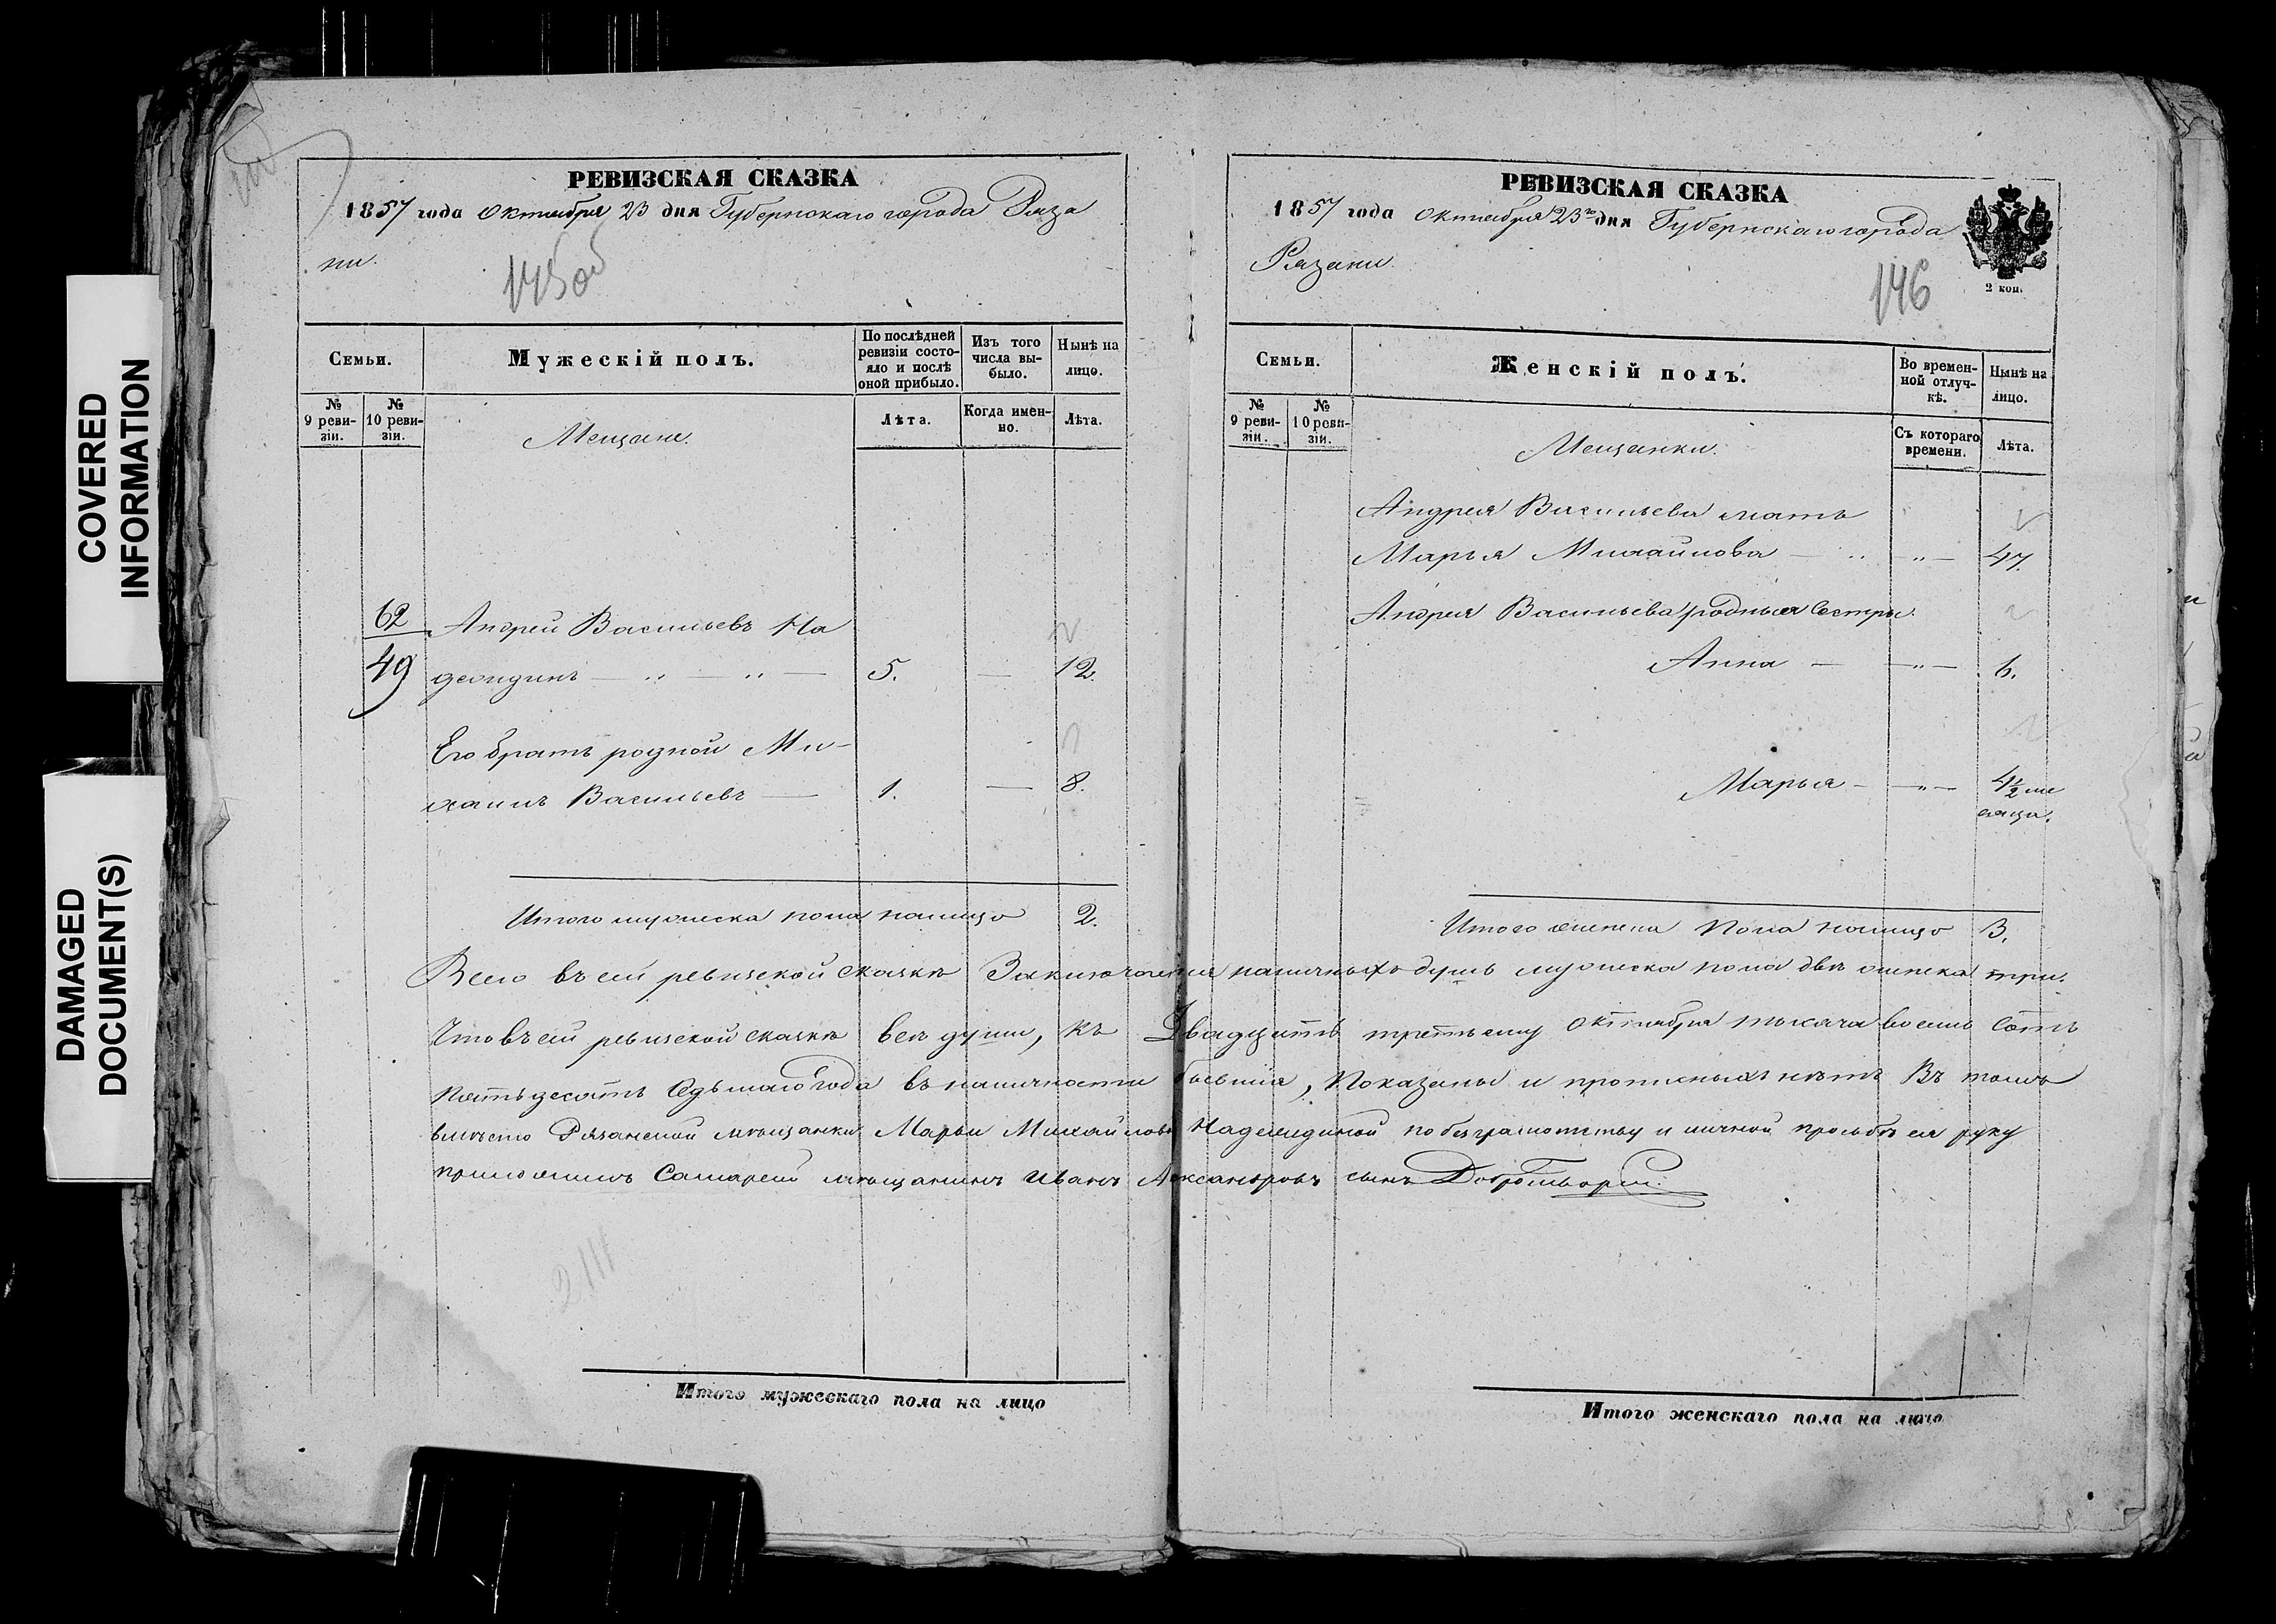 COVERED
INFORMATION
DAMAGED
DOCUMENT(S)
РЕВИЗСКАЯ СКАЗКА
1857 года Октября 23 дня Губернскаго города Ряза
ни.
145об
Семьи.
Мужескій полъ.
По послѣдней
ревизіи состо-
яло и послѣ
оной прибыло.
Изъ того
числа вы-
было.
Нынѣ на
лицо.
№
9 реви-
зіи.
№
10 реви-
зіи.
Мещане.
Лѣта.
Когда имен-
но.
Лѣта.
62 Андрей Васильевъ На
49 деждинъ — „ — „ — 5. — 12.
Его братъ родной Ми-
хаилъ Васильевъ — 1. — 8.
Итого мужеска пола налицо 2.
РЕВИЗСКАЯ СКАЗКА
1857 года Октября 23го дня Губернскаго города
Рязани.
146
2 коп.
Семьи.
Женскій полъ.
Во времен-
ной отлуч-
кѣ.
Нынѣ на
лицо.
№
9 реви-
зіи.
№
10 реви-
зіи.
Мещанки.
Съ котораго
времени.
Лѣта.
Андрея Васильева мать
Марья Михайлова — „ — 47.
Андрея Васильева родныя Сестры.
Анна — — „ — 6.
Марья — — „ — 4½ ме
сяца.
Итого женска Пола налицо 3.
Всего въ сей ревизской сказкѣ Заключается наличныхъ душъ мужеска пола двѣ женска три.
Что въ сей ревизской сказкѣ всѣ души, къ Двадцать третьему Октября тысяча восемь сотъ
пятьдесятъ седьмаго года въ наличности бывшія, Показаны и прописныхъ нѣтъ Въ томъ
вмѣсто Рязанской мѣщанки Марьи Михайловы Надеждиной по безграмотству и личной просьбѣ ея руку
приложилъ мѣщанинъ Иванъ Александровъ сынъ
Итого мужескаго пола на лицо
Итого женскаго пола на лицо